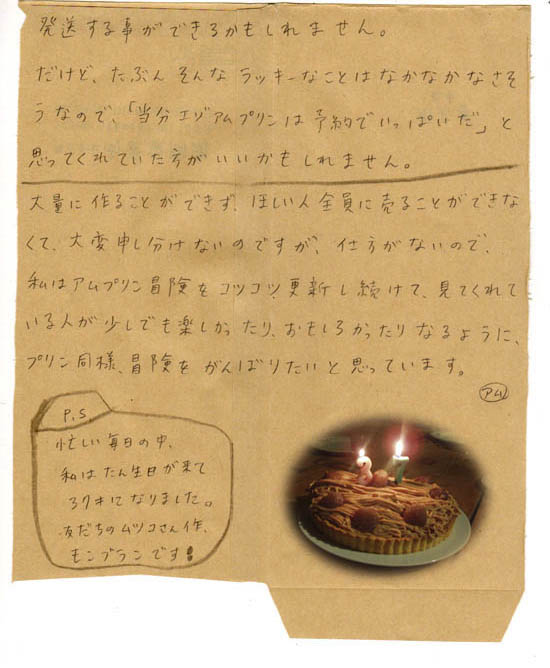 発送する事ができるかもしれません。
だけど、たぶん そんな ラッキーなことは なかなかなさそ
うなので、「当分エゾアムプリンは予約でいっぱいだ」と
思ってくれていた方がいいかもしれません。
大量に作ることができず、ほしい人全員に売ることができな
くて、大変申し分けないのですが、仕方がないので、
私はアムプリン冒険をコツコツ更新し続けて、見てくれて
いる人が少しでも楽しかったり、おもしろかったりなるように、
プリン同様、冒険をがんばりたいと思っています。
アム
P.S
忙しい毎日の中、
私はたん生日が来て
37才になりました。
友だちのムツコさん作、
モンブランです!
37